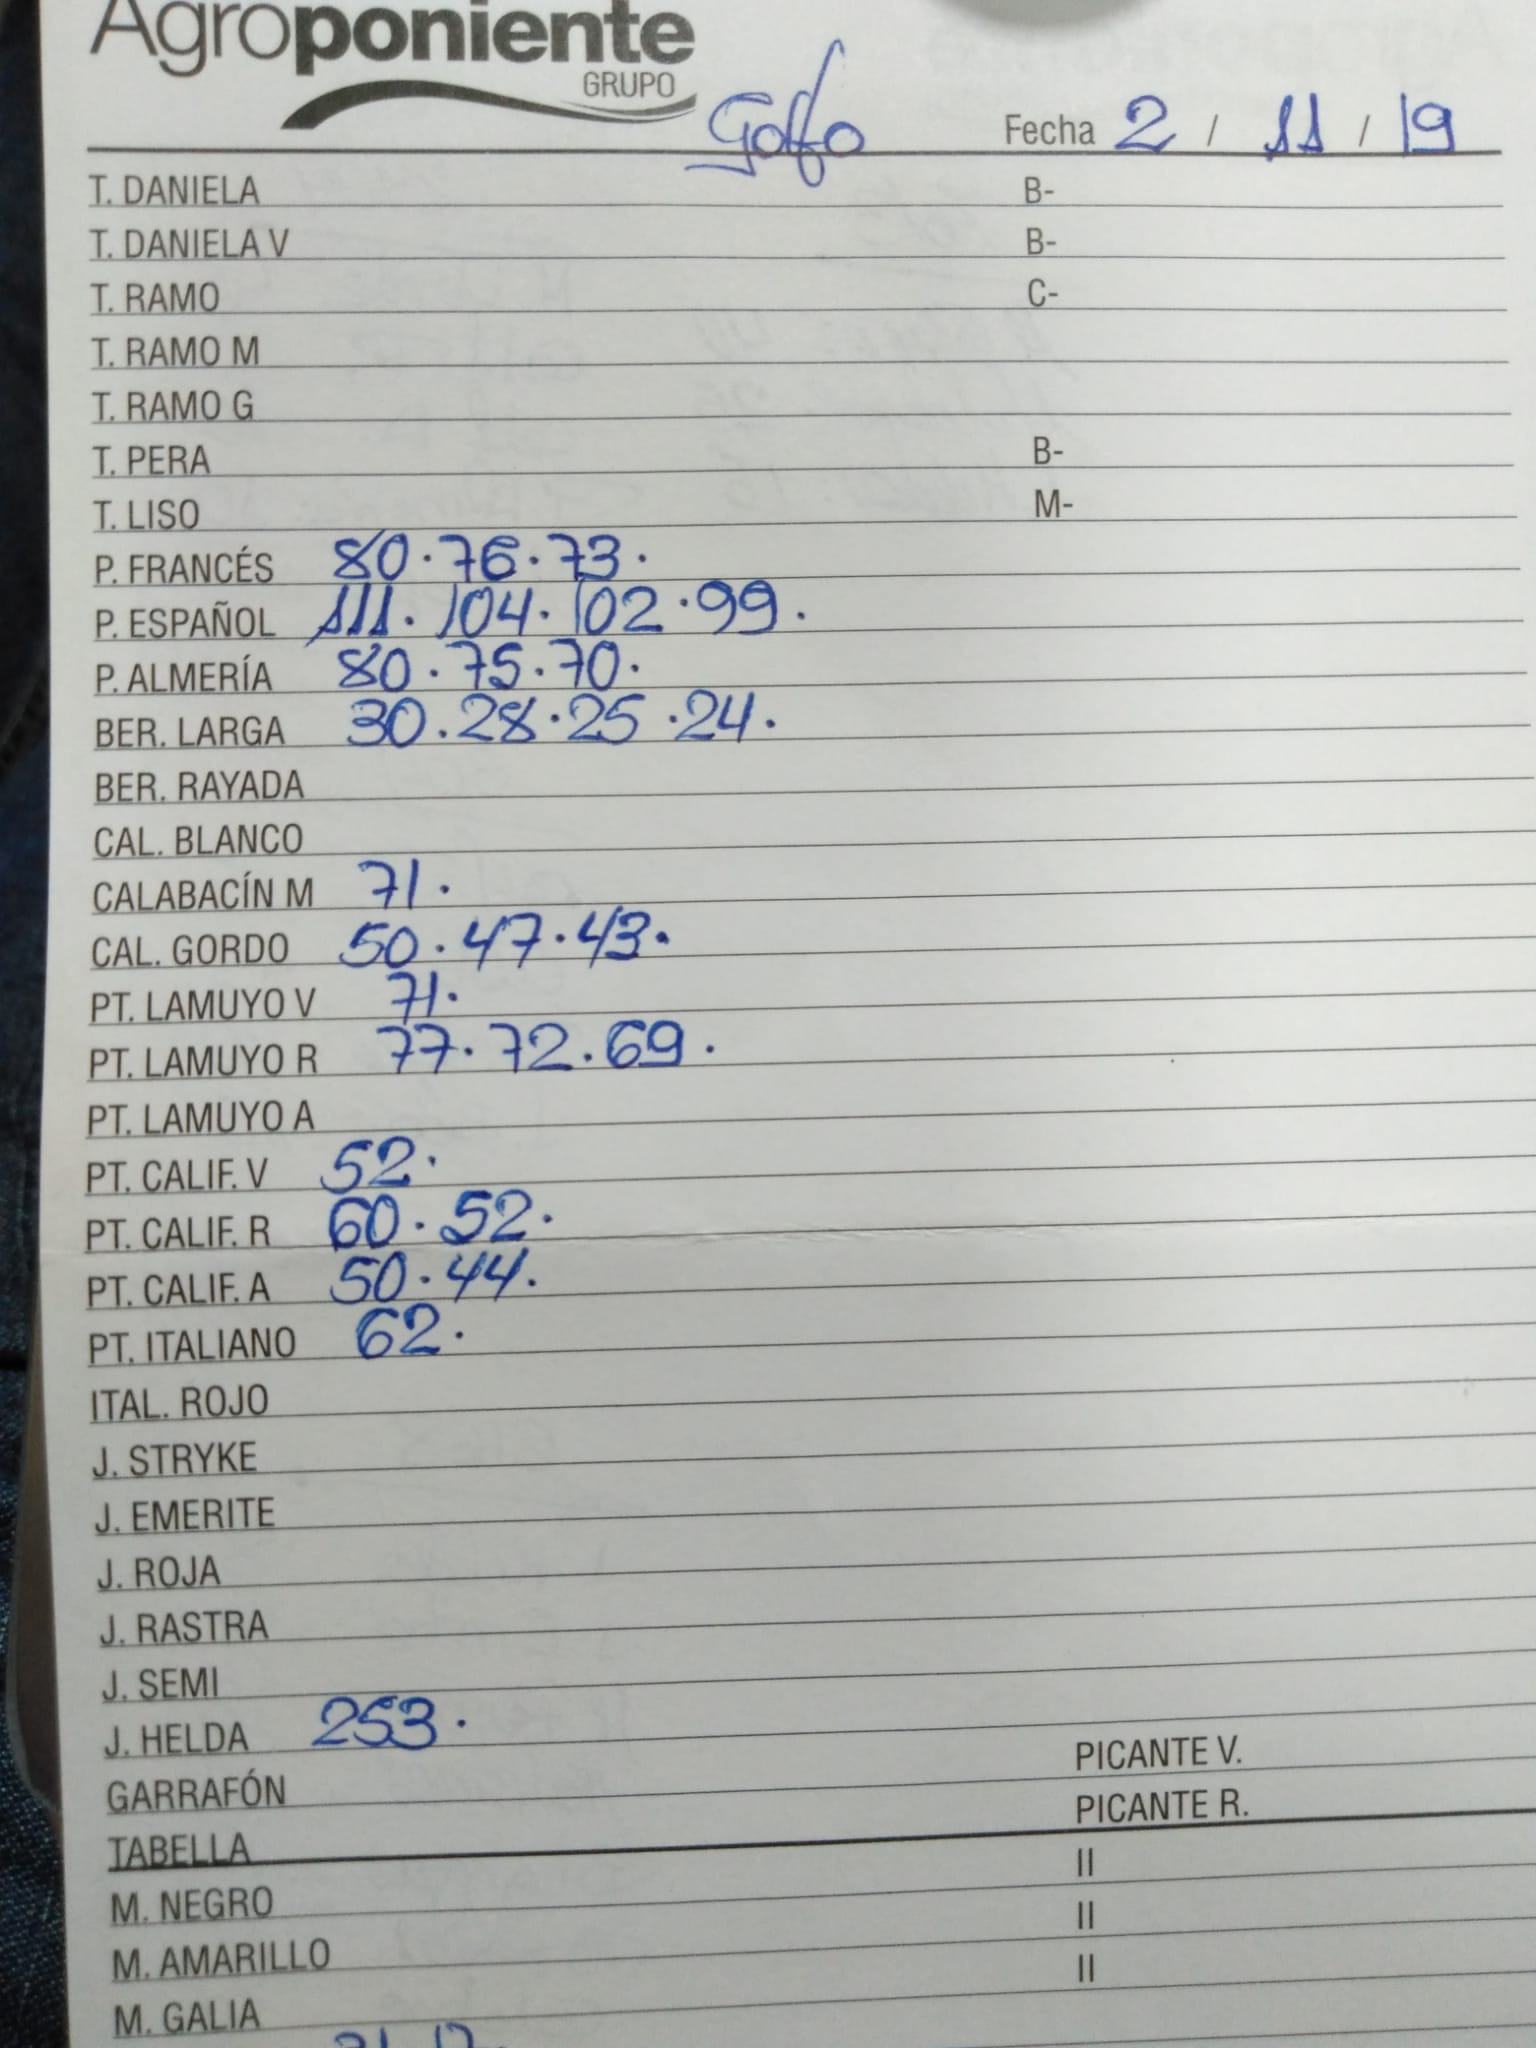 Agroponiente
GRUPO
Golfo Fecha 2 / 11 / 19
T. DANIELA B-
T. DANIELA V B-
T. RAMO C-
T. RAMO M
T. RAMO G
T. PERA B-
T. LISO M-
P. FRANCÉS 80.76.73.
P. ESPAÑOL 111.104.102.99.
P. ALMERÍA 80.75.70.
BER. LARGA 30.28.25.24.
BER. RAYADA
CAL. BLANCO
CALABACÍN M 71.
CAL. GORDO 50.47.43.
PT. LAMUYO V 71.
PT. LAMUYO R 77.72.69.
PT. LAMUYO A
PT. CALIF. V 52.
PT. CALIF. R 60.52.
PT. CALIF. A 50.44.
PT. ITALIANO 62.
ITAL. ROJO
J. STRYKE
J. EMERITE
J. ROJA
J. RASTRA
J. SEMI
J. HELDA 253.
GARRAFÓN PICANTE V.
TABELLA PICANTE R.
M. NEGRO II
M. AMARILLO II
M. GALIA II